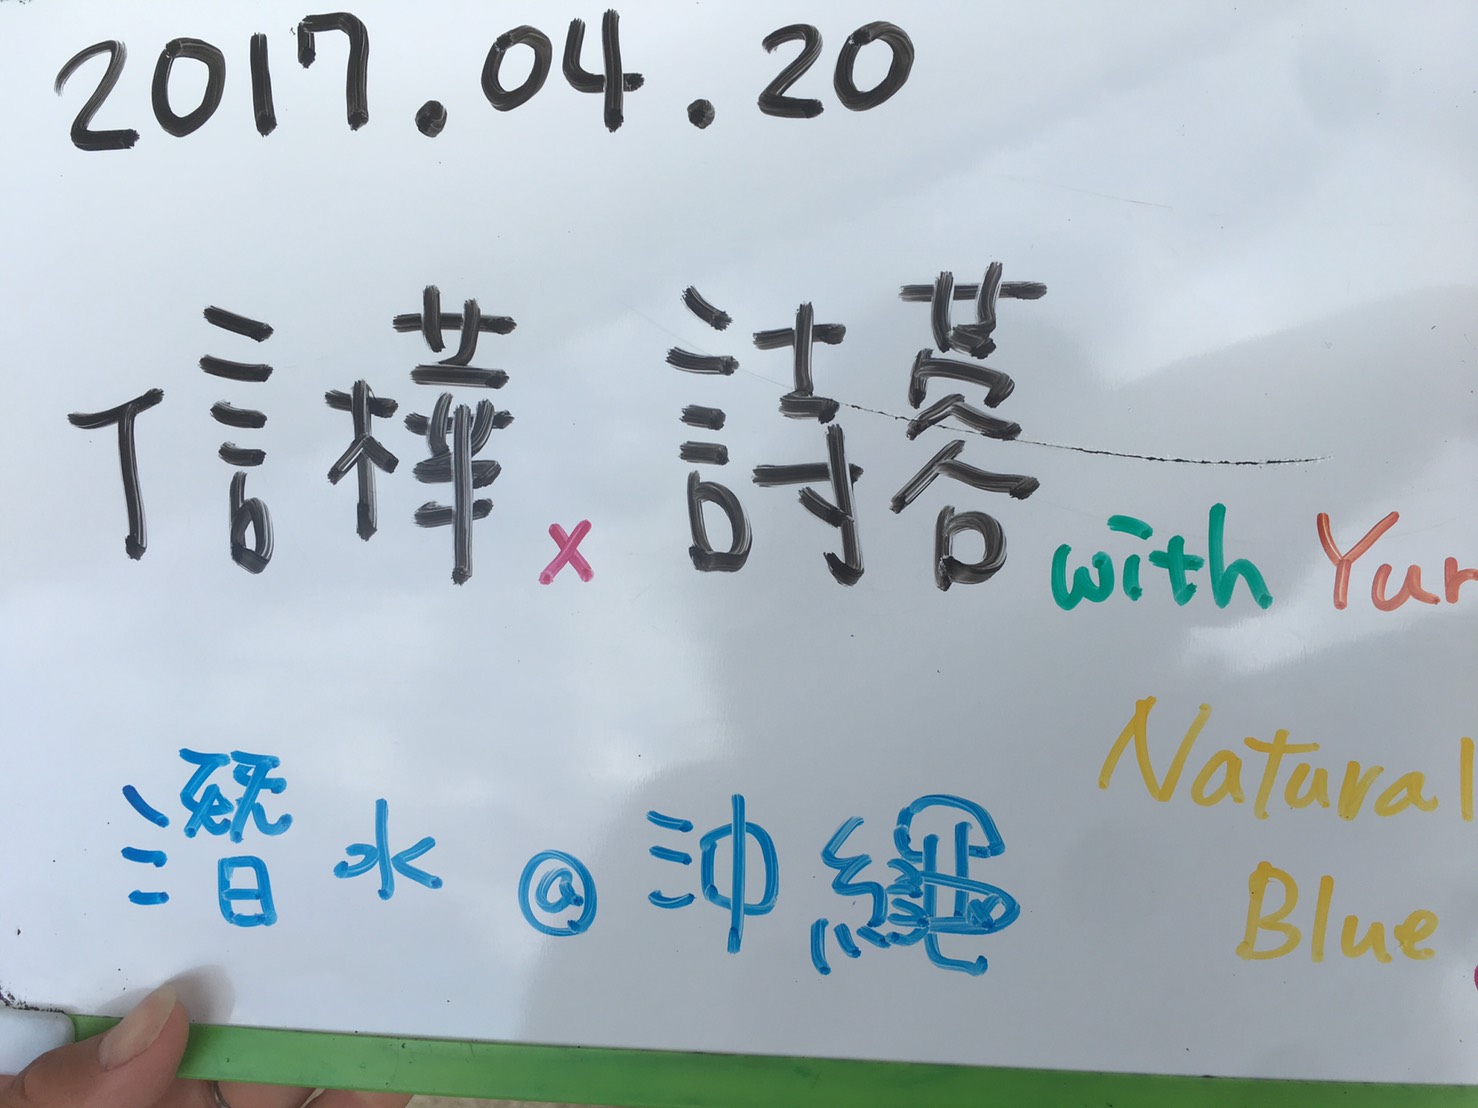 2017.04.20
信樺 x 詩蓉 with Yur
潛水 @ 沖繩
Natural
Blue